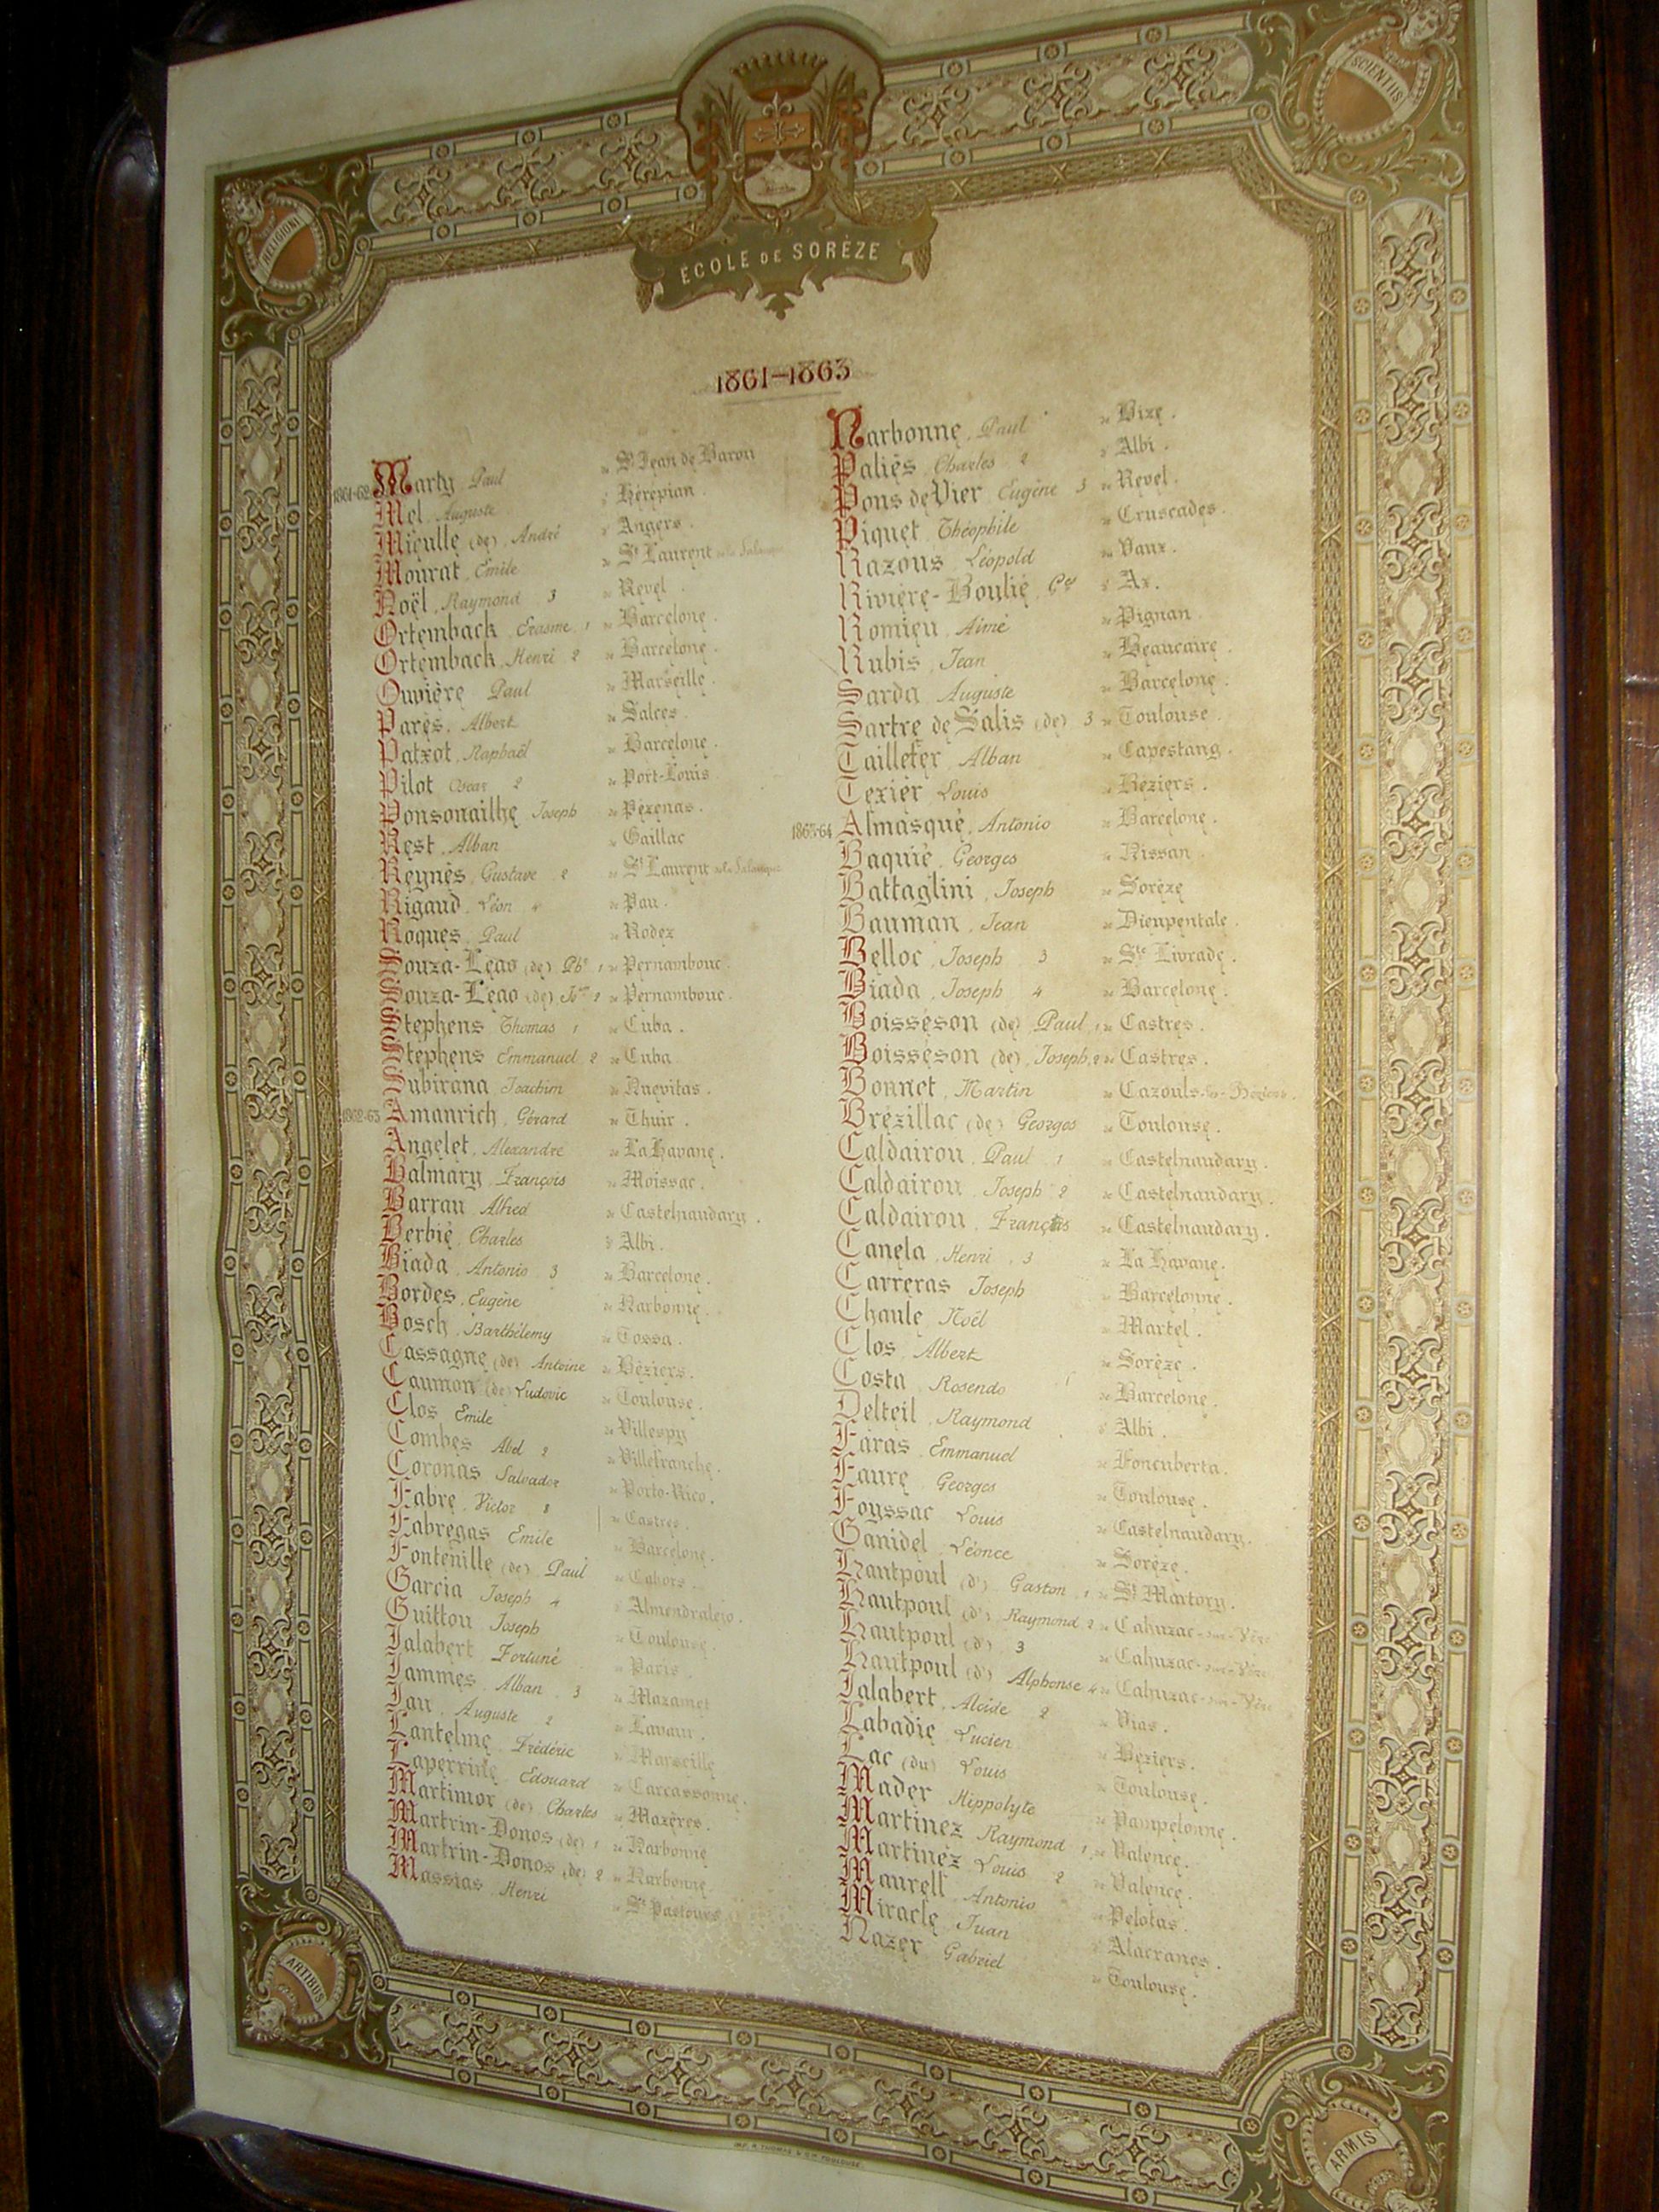 RELIGIONI
SCIENTIIS
ÉCOLE DE SORÈZE
1861-1863
1861-62 Marty Paul de St Jean de Barou
Mel Auguste d'Hérépian.
Mieulle (de) André d'Angers.
Mourat Emile de St Laurent de la Salanque
Noël, Raymond 3 de Revel.
Ortemback Erasme 1 de Barcelone.
Ortemback Henri 2 de Barcelone.
Ouvière Paul de Marseille.
Parès, Albert de Salces.
Patxot Raphaël de Barcelone.
Pilot Oscar 2 de Port-Louis
Ponsonailhe Joseph de Pézenas.
Rest Alban de Gaillac
Reynès Gustave 2 de St Laurent de la Salanque
Rigaud Léon 4 de Pau.
Roques Paul de Rodez
Souza-Leao (de) Phe 1 de Pernambouc.
Souza-Leao (de) 2 de Pernambouc.
Stephens Thomas 1 de Cuba.
Stephens Emmanuel 2 de Cuba
Subirana Joachim de Nuevitas.
1862-63 Amanrich, Gérard de Thuir.
Angelet, Alexandre de La Havane.
Balmary, François de Moissac.
Barrau Alfred de Castelnaudary.
Berbié, Charles d'Albi.
Biada, Antonio 3 de Barcelone.
Bordes, Eugène de Narbonne.
Bosch, Barthélemy de Tossa.
Cassagne (de) Antoine de Béziers.
Caumon (de) Ludovic de Toulouse.
Clos Emile de Villespy
Combes Abel 2 de Villefranche.
Coronas Salvador de Porto-Rico.
Fabre, Victor 8 de Castres.
Fabregas Emile de Barcelone.
Fontenille (de) Paul de Cahors.
Garcia Joseph 4 d'Almendralejo.
Guittou Joseph de Toulouse.
Jalabert Fortuné de Paris.
Jammes, Alban 3 de Mazamet
Jau, Auguste 2 de Lavaur.
Lantelme Frédéric de Marseille
Laperrine Edouard de Carcassonne.
Martimor (de) Charles de Mazères.
Martrin-Donos (de) 1 de Narbonne
Martrin-Donos (de) 2 de Narbonne.
Massias Henri de St Pastours
Narbonne, Paul de Bize.
Paliès Charles 2 d'Albi.
Pons de Vier Eugène 3 de Revel.
Piquet Théophile de Cruscades.
Razous Léopold de Vaux.
Rivière-Boulié, d'Ax.
Romieu, Aimé de Pignan
Rubis, Jean de Beaucaire.
Sarda Auguste de Barcelone.
Sartre de Salis (de) 3 de Toulouse.
Taillefer Alban de Capestang.
Texier Louis de Béziers.
1863-64 Almasqué, Antonio de Barcelone.
Baquié, Georges de Nissan
Battaglini, Joseph de Sorèze
Bauman, Jean de Dieupentale.
Belloc, Joseph 3 de Ste Livrade.
Biada, Joseph 4 de Barcelone.
Boisséson (de) Paul, 1 de Castres.
Boisséson (de), Joseph, 2 de Castres.
Bonnet, Martin de Cazouls-les-Béziers.
Brézillac (de) Georges de Toulouse.
Caldairou Paul 1 de Castelnaudary.
Caldairou Joseph 2 de Castelnaudary.
Caldairou, François de Castelnaudary.
Canela, Henri, 3 de La Havane.
Carreras Joseph de Barcelonne.
Chaule Noël de Martel.
Clos Albert de Sorèze.
Costa Rosendo de Barcelone.
Delteil, Raymond d'Albi.
Faras Emmanuel de Foncuberta.
Faure Georges de Toulouse.
Foyssac Louis de Castelnaudary.
Ganidel Léonce de Sorèze.
Hautpoul (d') Gaston, 1 de St Martory.
Hautpoul (d') Raymond 2 de Cahuzac-sur-Vère
Hautpoul (d') 3 de Cahuzac-sur-Vère
Hautpoul (d') Alphonse 4 de Cahuzac-sur-Vère
Jalabert, Alcide 2 de Vias.
Labadie Lucien de Béziers.
Lac (du) Louis de Toulouse.
Mader Hippolyte de Pampelonne.
Martinez Raymond 1 de Valence.
Martinez Louis 2 de Valence.
Maurell Antonio de Pelotas.
Miracle Juan d'Alacranes.
Nazer Gabriel de Toulouse.
ARTIBUS
ARMIS